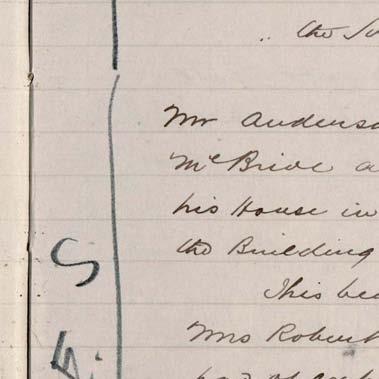 the
Mr Anderso
McBride a
his House in
the Building
This be
Mrs Robert